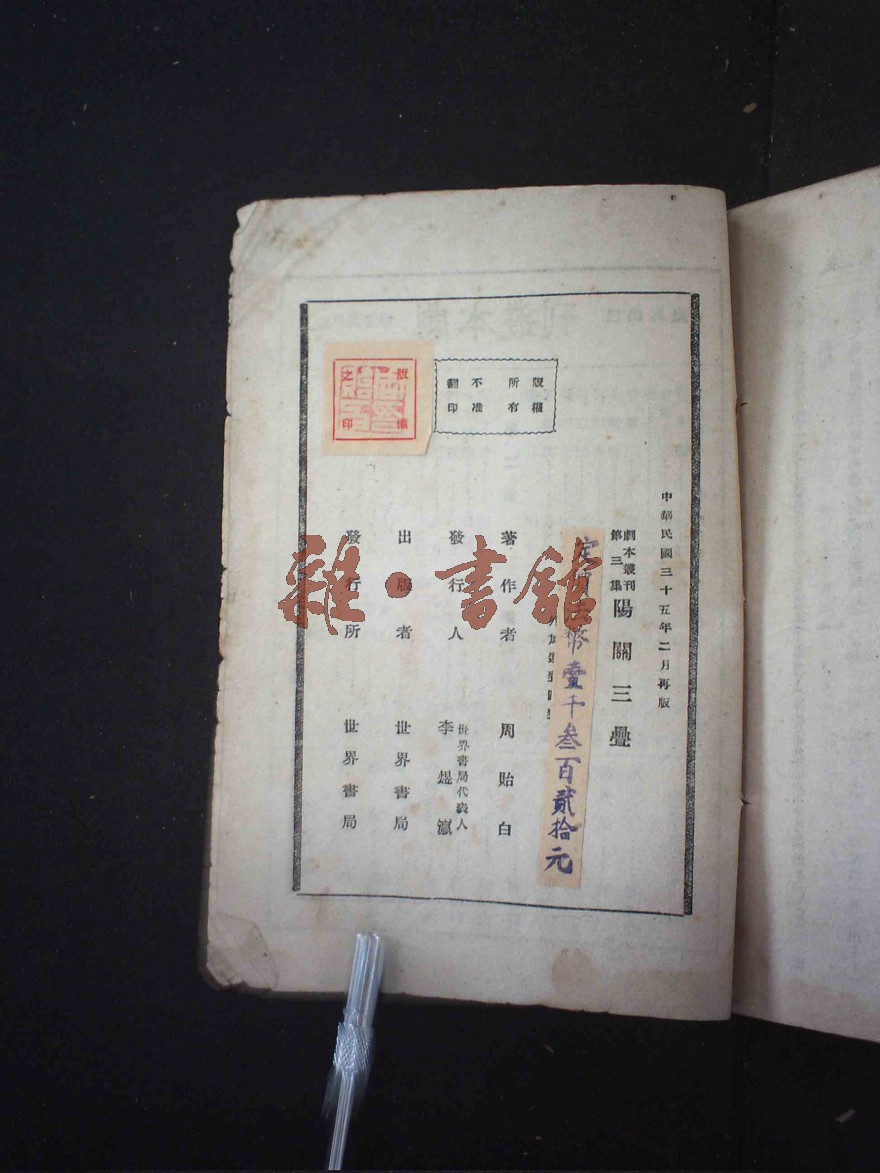 中華民國三十五年二月再版
劇本叢刊
第三集
陽關三疊
定價法幣壹千叁百貳拾元
著作者 周貽白
發行人 世界書局代表人
李煜瀛
出版者 世界書局
發行所 世界書局
版權
所有
不准
翻印
版權
之印
雜·書館